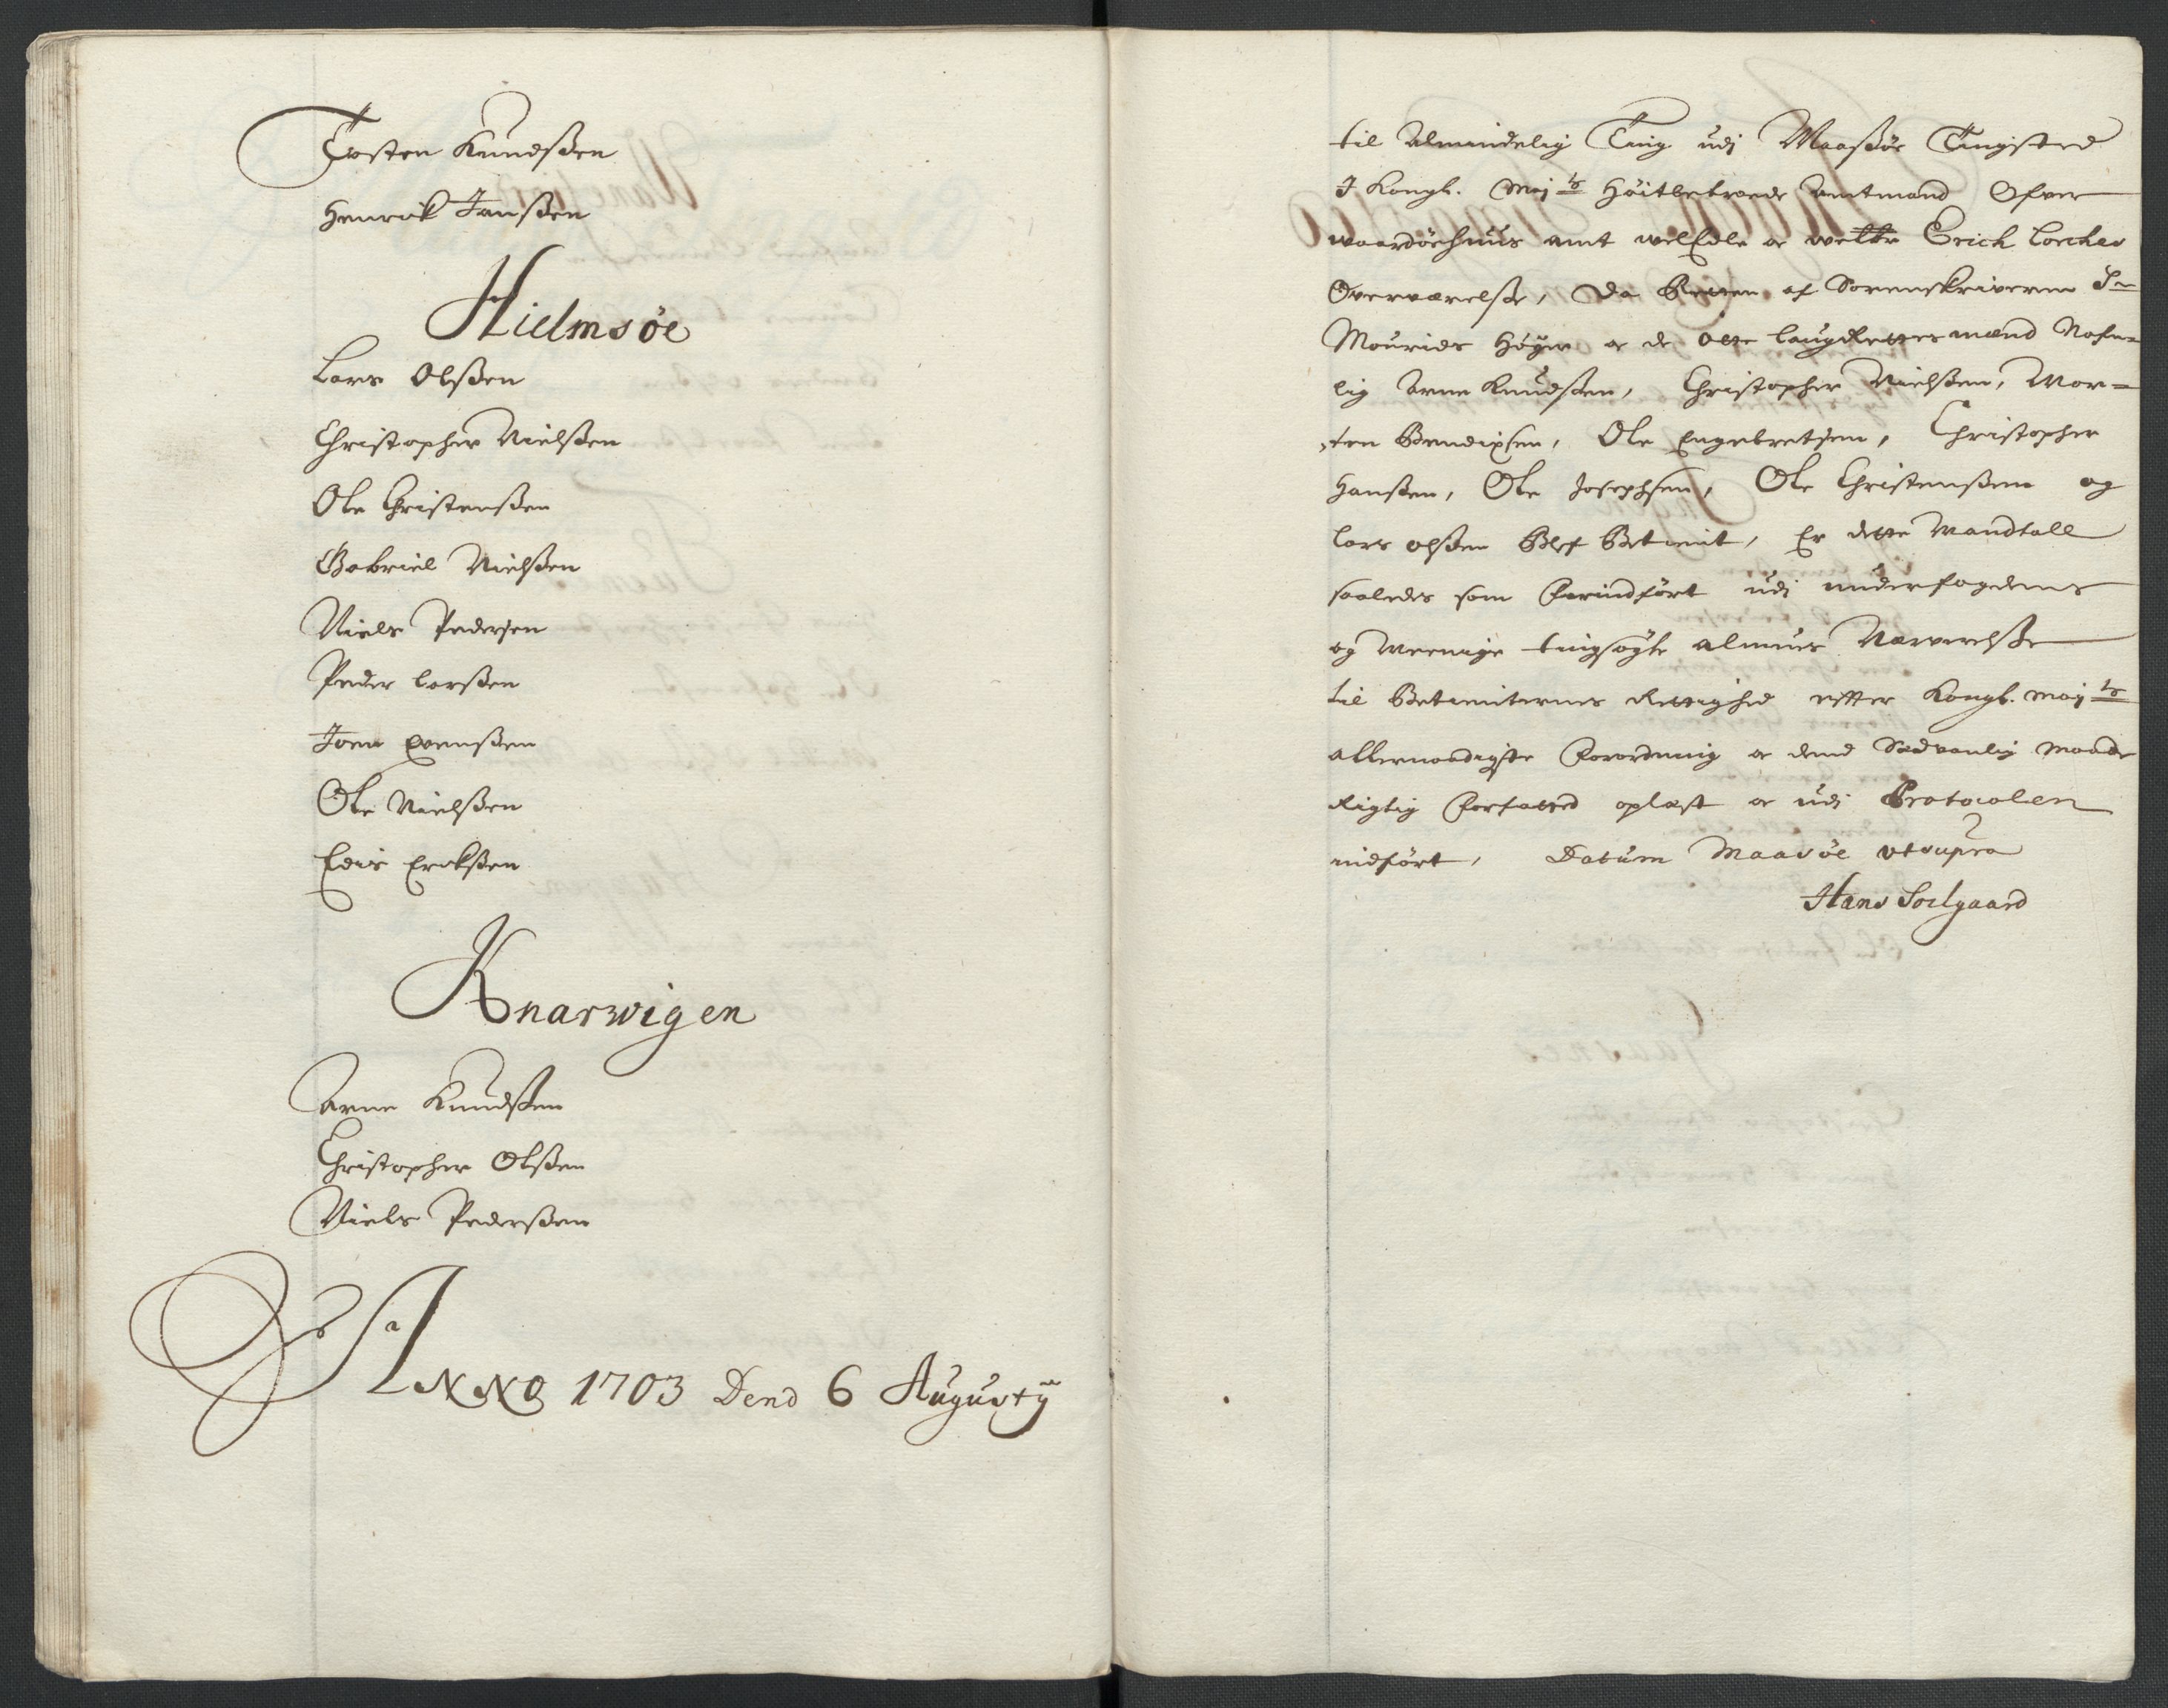 Torsten Knudsßen
Henrick Jansßen
Hielmsöe
Lars Olsßen
Christopher Nielsßen
Ole Christensßen
Gabriel Nielsßen
Niels Pedersen
Peder Larsßen
Joen Evensßen
Ole Nielsßen
Edis Ericksßen
Knarwigen
Arne Knudsßen
Christopher Olsßen
Niels Pedersßen
ANNO 1703 Dend 6 Augusty
til Almindelig Ting udj Maaßöe Tingsted
I Kongl. Maj ts Höitbetroede Amtmand Ofver
waardöehuus amt welEdle og Erich Lorches
Overværelße, Da Retten af Sorenskriveren Sr
Mourids Höyer og de Otte laugRettesmænd Nafn-
lig Arne Knudsßen, Christopher Nielsßen, Mor-
ten Bendixsen, Ole Engebretsen, Christopher
Hansßen, Ole Josephsen, Ole Christensßen og
Lars olsßen Blef Betient, Er dette Mandtall
saaledes som forindfört udj underfogdens
og Meenige tingsögte almues Nærverelße
til Betienternes Rettighed efter Kongl. Maj ts
allernaadigste forordning og dend Sædvanlig Maade
Rigtig forfatted oplæst og udj Protocolen
indfört, Datum Maasöe ut supra
Hans Soelgaard